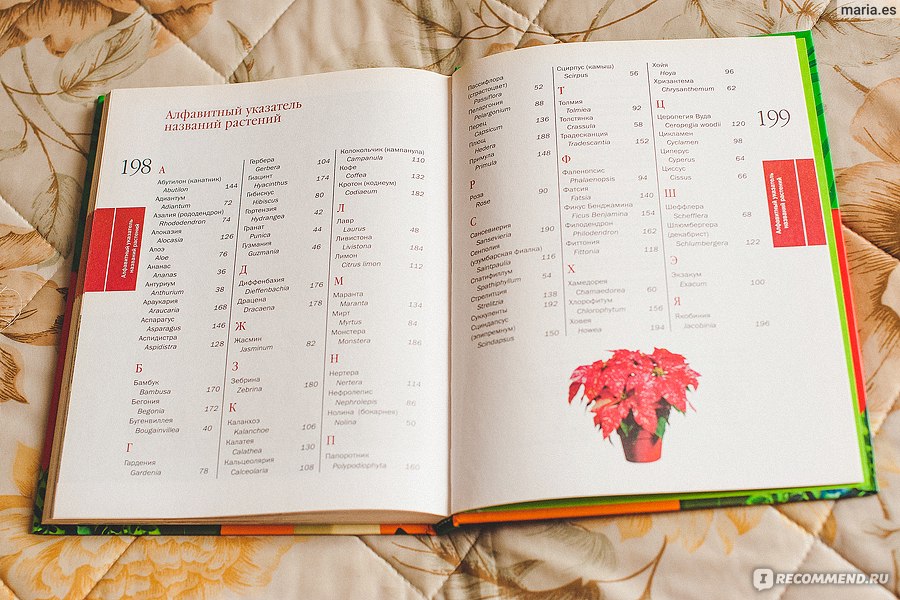 maria.es
Алфавитный указатель
названий растений
198
Алфавитный указатель
названий растений
А
Абутилон (канатник)
Abutilon 144
Адиантум
Adiantum 72
Азалия (рододендрон)
Rhododendron 74
Алоказия
Alocasia 126
Алоэ
Aloe 76
Ананас
Ananas 36
Антуриум
Anthurium 38
Араукария
Araucaria 168
Аспарагус
Asparagus 146
Аспидистра
Aspidistra 128
Б
Бамбук
Bambusa 170
Бегония
Begonia 172
Бугенвиллея
Bougainvillea 40
Г
Гардения
Gardenia 78
Гербера
Gerbera 104
Гиацинт
Hyacinthus 174
Гибискус
Hibiscus 80
Гортензия
Hydrangea 42
Гранат
Punica 44
Гузмания
Guzmania 46
Д
Диффенбахия
Dieffenbachia 176
Драцена
Dracaena 178
Ж
Жасмин
Jasminum 82
З
Зебрина
Zebrina 180
К
Каланхоэ
Kalanchoe 106
Калатея
Calathea 130
Кальцеолярия
Calceolaria 108
Колокольчик (кампанула)
Campanula 110
Кофе
Coffea 132
Кротон (кодиеум)
Codiaeum 182
Л
Лавр
Laurus 48
Ливистона
Livistona 184
Лимон
Citrus limon 112
М
Маранта
Maranta 134
Мирт
Myrtus 84
Монстера
Monstera 186
Н
Нертера
Nertera 114
Нефролепис
Nephrolepis 86
Нолина (бокарнея)
Nolina 50
П
Папоротник
Polypodiophyta 160
Пассифлора
(страстоцвет) 52
Passiflora
Пеларгония 88
Pelargonium
Перец 136
Capsicum
Плющ 188
Hedera
Примула 148
Primula
Р
Роза 90
Rose
С
Сансевиерия 190
Sansevieria
Сенполия
(узумбарская фиалка)
Saintpaulia 116
Спатифиллум
Spathiphyllum 54
Стрелиция 138
Strelitzia 192
Суккуленты
Сциндапсус
(эпипремнум) 150
Scindapsus
Сцирпус (камыш)
Scirpus 56
Т
Толмия
Tolmiea 92
Толстянка
Crassula 58
Традесканция
Tradescantia 152
Ф
Фаленопсис
Phalaenopsis 94
Фатсия
Fatsia 140
Фикус Бенджамина
Ficus Benjamina 154
Филодендрон
Philodendron 162
Фиттония
Fittonia 118
Х
Хамедорея
Chamaedorea 60
Хлорофитум
Chlorophytum 156
Ховея
Howea 194
Хойя
Hoya 96
Хризантема
Chrysanthemum 62
Ц
Церопегия Вуда
Ceropegia woodii 120
Цикламен
Cyclamen 98
Циперус
Cyperus 64
Циссус
Cissus 66
Ш
Шеффлера
Schefflera 68
Шлюмбергера
(декабрист)
Schlumbergera 122
Э
Экзакум
Exacum 100
Я
Якобиния
Jacobinia 196
199
Алфавитный указатель
названий растений
I RECOMMEND.RU